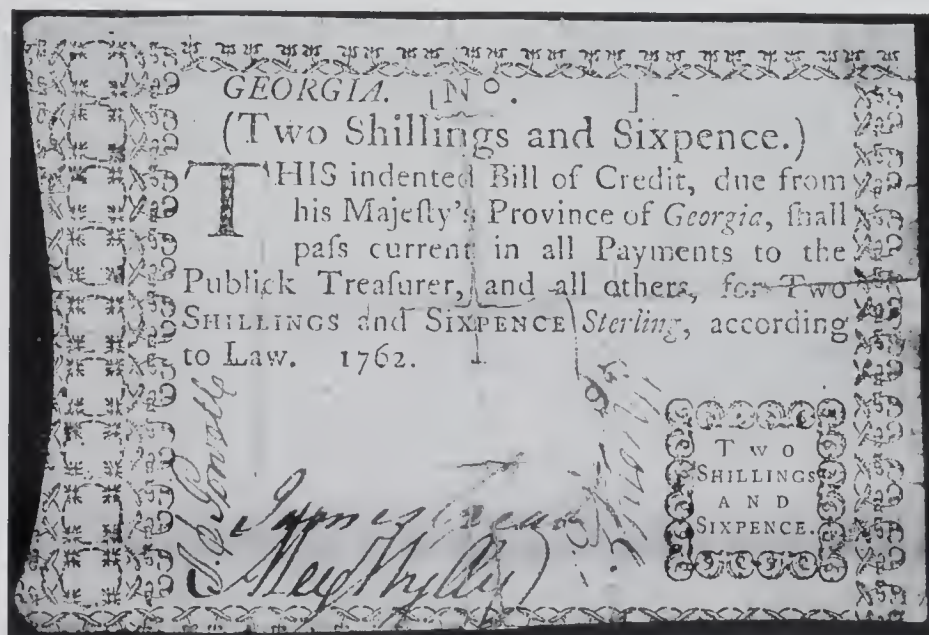 GEORGIA. [No. ]
(Two Shillings and Sixpence.)
THIS indented Bill of Credit, due from
his Majeſty's Province of Georgia, ſhall
paſs current in all Payments to the
Publick Treaſurer, and all others, for Two
SHILLINGS and SIXPENCE Sterling, according
to Law. 1762.
TWO
SHILLINGS
AND
SIXPENCE.
James
Alex Wylly